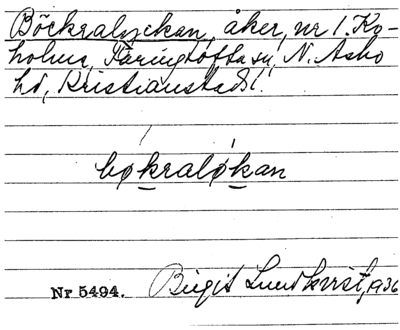 Böckralyckan, åker, nr 1. Ko-
holma, Färingtofta sn, N. Åsbo
hd, Kristianstads l.
bøkraløkan
Nr 5494. Birgit Lundkvist, 1936